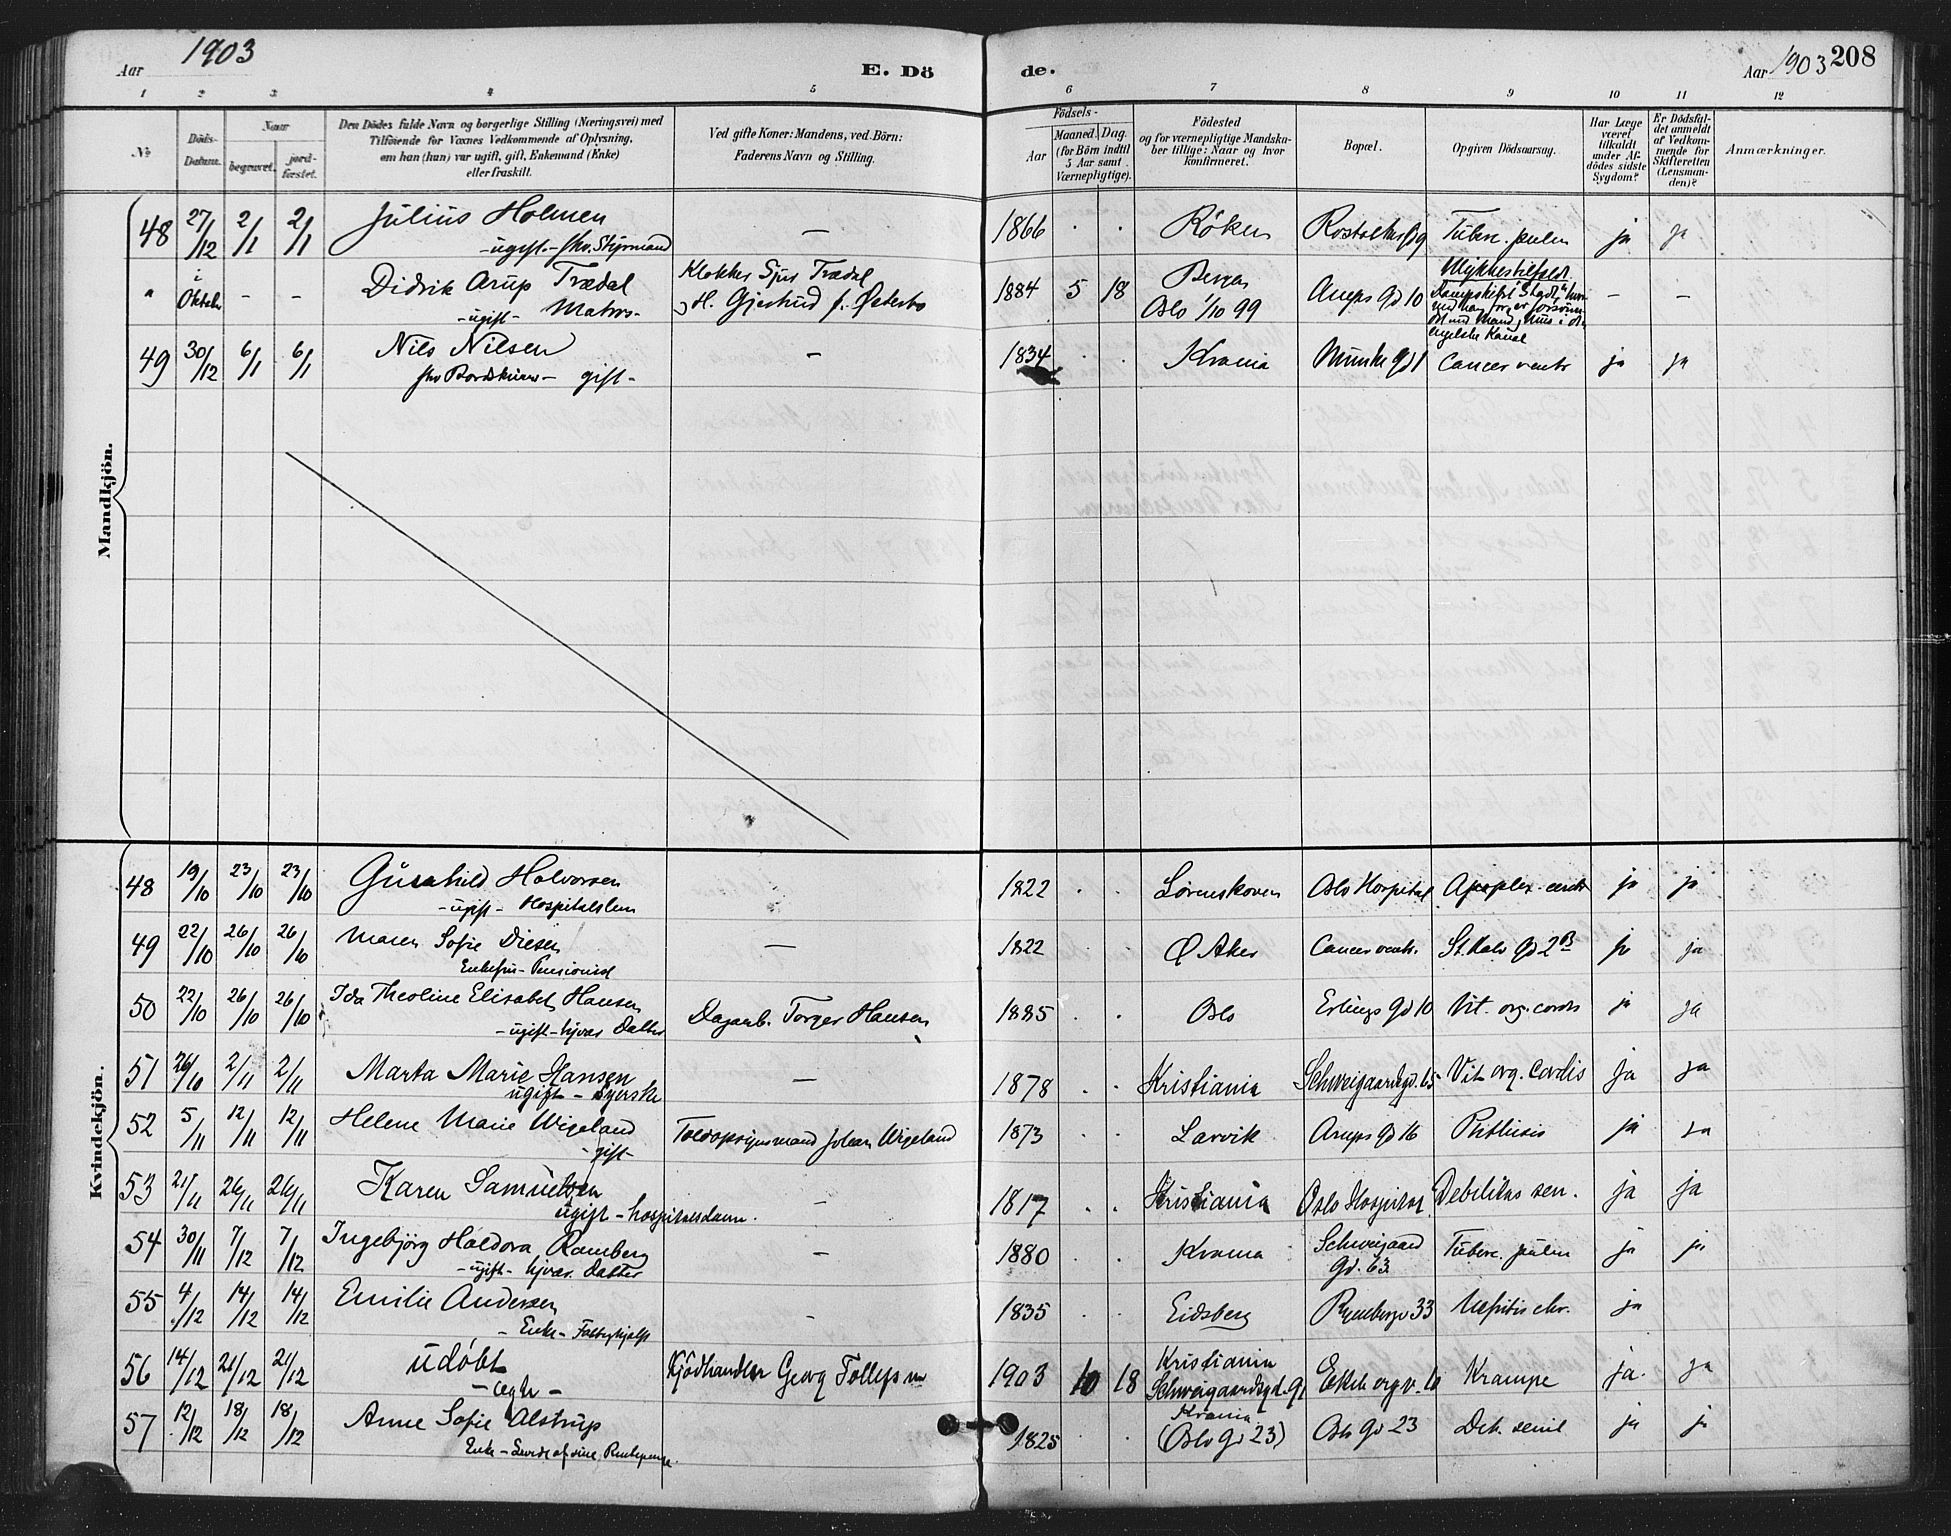 Aar 1903
E. Dö
de.
Aar 1903 208
1 2 3 4 5 6 7 8 9 10 11 12
No
Döds-Datum.
Naar
begravet.
jord-fæstet.
Den Dödes fulde Navn og borgerlige Stilling (Næringsvei) med
Tilföiende for Voxnes Vedkommende af Oplysning,
om han (hun) var ugift, gift, Enkemand (Enke)
eller fraskilt.
Ved gifte Koner: Mandens, ved Börn:
Faderens Navn og Stilling.
Födsels-
Aar
Maaned. Dag.
(for Börn indtil
5 Aar samt
Værnepligtige).
Födested
og for værnepligtige Mandska-
ber tillige: Naar og hvor
konfirmeret.
Bopæl.
Opgiven Dödsaarsag.
Har Læge
været
tilkaldt
under Af-
dödes sidste
Sygdom?
Er Dödsfal-
det anmeldt
af Vedkom-
mende for
Skifteretten
(Lensman-
den)?
Anmærkninger.
Mandkjön.
48 27/12 2/1 2/1 Julius Holmen — 1866 Röken Tuberc. pulm ja ja
ugift - fhv. Styrmand
" i Oktober - - Didrik Arup Trædal Klokker Sjur Trædal 1884 5 18 Bergen Arups Gd 10 Ulykkestilfælde. — —
-ugift- Matros- H. Gjertrud f. Østerbø Oslo 1/10 99
Engelske Kanal
49 30/12 6/1 6/1 Nils Nilsen — 1834 Krania Munke Gd 1 Cancer ventr ja ja
gift-
Kvindekjön.
48 19/10 23/10 23/10 Gunhild Halvorsen 1822 Lørenskoven Oslo Hospital Apoplex. cerebr ja ja
-ugift- Hospitalslem
49 22/10 26/10 26/10 Maren Sofie Diesen — 1822 Ø Aker Cancer ventr. St. Halv Gd 2B ja ja
Enkefru - Pensionist
50 22/10 26/10 26/10 Ida Theoline Elisabet Hansen Dagarb. Torger Hansen 1885 Oslo Erlings Gd 10 Vit. org. cordis ja ja
-ugift- hjvær. Datter
51 26/10 2/11 2/11 Marta Marie Hansen — 1878 Kristiania Schweigaardsgd. 65 Vit. org. Cordis ja ja
ugift - Syerske
52 5/11 12/11 12/11 Helene Marie Wigeland Toldopsynsmand Johan Wigeland 1873 Larvik Arups Gd 16 Phthisis ja ja
-gift-
53 21/11 26/11 26/11 Karen Samuelsen — 1817 Kristiania Oslo Hospital Debilitas sen. ja ja
ugift - hospitalslem.
54 30/11 7/12 7/12 Ingebjörg Haldora Ramberg — 1880 Krania Schweigaard Gd. 63 Tuberc. pulm ja ja
-ugift- hjvær. Datter
55 4/12 14/12 14/12 Emilie Andersen - 1835 Eidsberg Ryenbergv 33 Nefritis chr. ja
- Enke - Fattighjælp
56 14/12 21/12 21/12 Udøbt Kjödhandler Georg Tollefsen 1903 10 18 Kristiania Schweigaardsgd. 91 Ekebergv. 10 Krampe ja. ja
- ægte -
57 12/12 18/12 18/12 Anne Sofie Alstrup 1825 Krania (Oslo Gd 23) Oslo Gd 23 Deb. senil ja ja
Enke - Levede af sine Rentepenge.